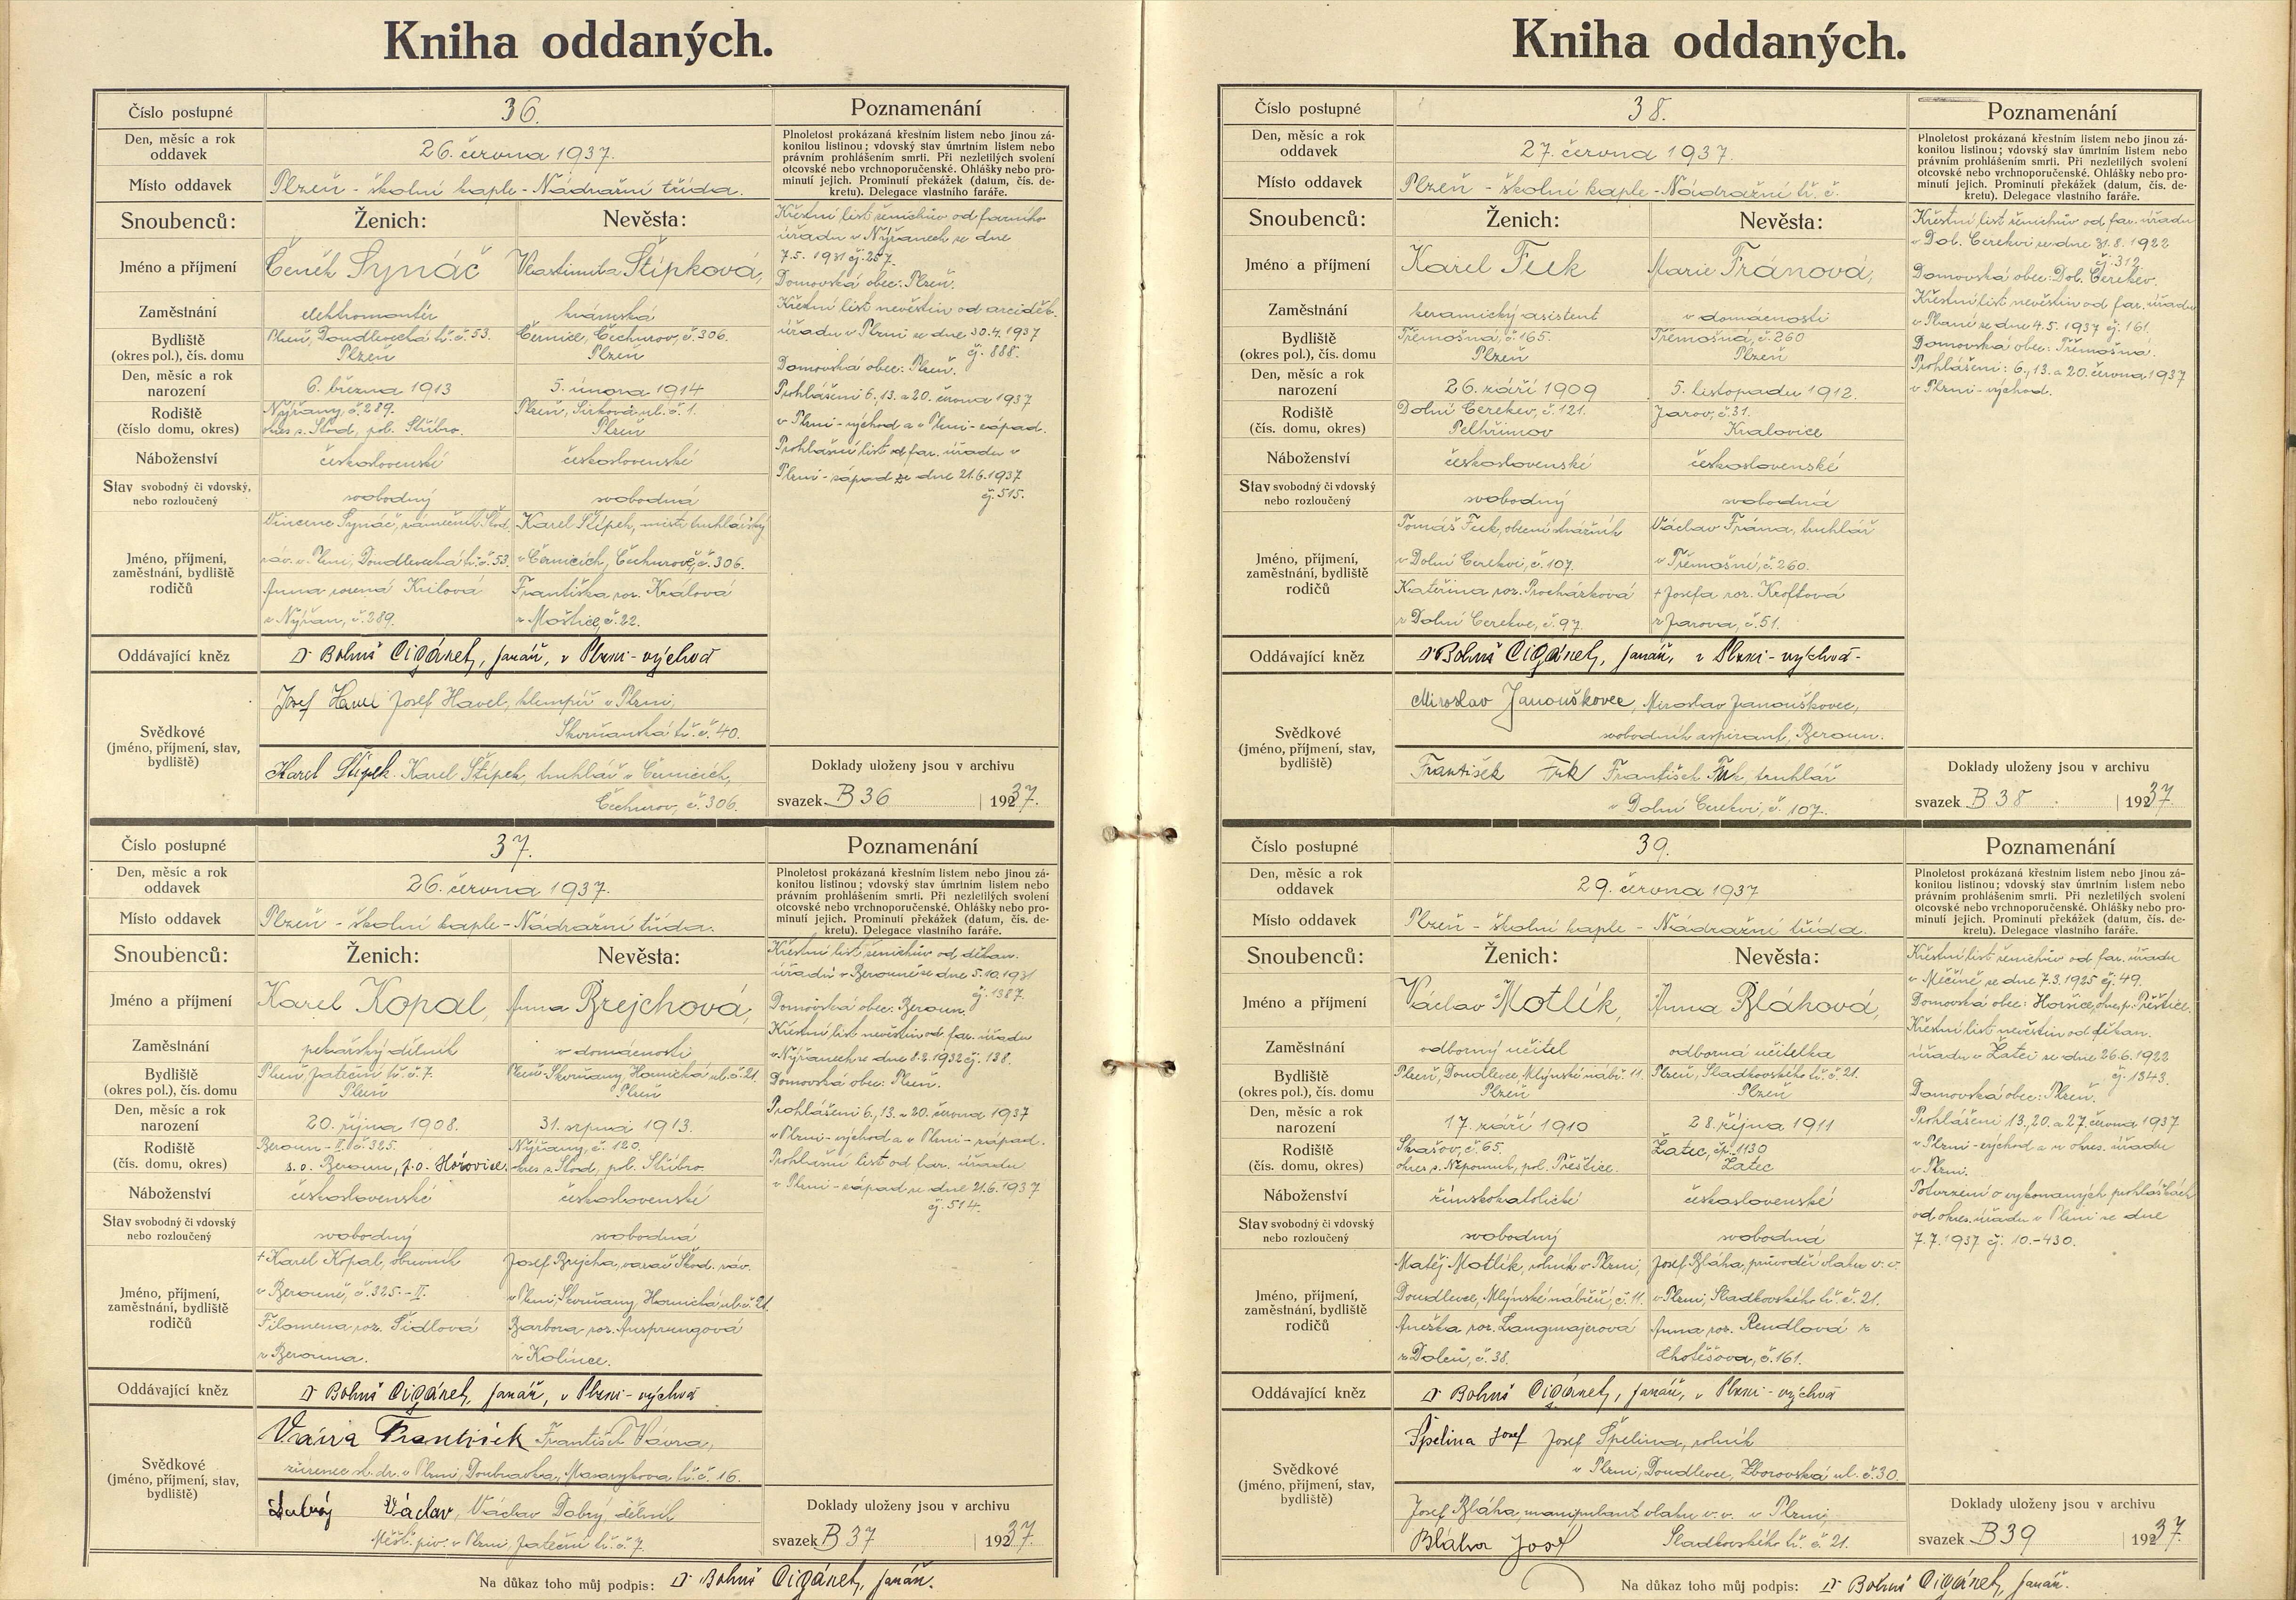 Kniha oddaných.
Číslo postupné 36. Poznamenání
Den, měsíc a rok oddavek 26. června 1937.
Plnoletost prokázaná křestním listem nebo jinou zá-
konitou listinou; vdovský stav úmrtním listem nebo
právním prohlášením smrti. Při nezletilých svolení
otcovské nebo vrchnoporučenské. Ohlášky nebo pro-
minutí jejich. Prominutí překážek (datum, čís. de-
kretu). Delegace vlastního faráře.
Místo oddavek Plzeň - školní kaple - Nádražní třída.
Snoubenců: Ženich: Nevěsta:
Jméno a příjmení Čeněk Synáč Vlastimila Štípková,
Zaměstnání elektromontér
Bydliště (okres pol.), čís. domu Plzeň, Doudlevecká tř. č. 53. Černice, Čechurov, č. 306.
Plzeň Plzeň
Den, měsíc a rok narození 6. března 1913 5. února 1914
Rodiště (číslo domu, okres) Nýřany, č. 289. Plzeň, Sirková ul. č. 1.
okres s. Stod, pol. Stříbro. Plzeň
Náboženství československé československé
Stav svobodný či vdovský, nebo rozloučený svobodný svobodná
Jméno, příjmení, zaměstnání, bydliště rodičů
Vincenc Synáč, zámečník Škod. Karel Štípek, mistr truhlářský
záv. v Plzni, Doudlevecká tř. č. 53. v Černicích, Čechurově, č. 306.
Anna rozená Františka roz. Králová
z Nýřan, č. 289. z Moštice, č. 22.
Oddávající kněz Dr Bohuš Cigánek, farář, v Plzni-východ
Svědkové (jméno, příjmení, stav, bydliště)
Josef Havel Josef Havel, klempíř v Plzni,
Skvrňanská tř. č. 40.
Karel Štípek. Karel Štípek, truhlář v Černicích,
Čechurov, č. 306.
Křestní list ženichův od farního
úřadu v Nýřanech ze dne
7.5. 1931 čj. 257.
Domovská obec: Plzeň.
Křestní list nevěstin od arciděk.
úřadu v Plzni ze dne 30.4.1937
čj. 888.
Domovská obec: Plzeň.
Prohlášeni 6., 13. a 20. června 1937
v Plzni-východ a v Plzni-západ.
Prohlášní list od far. úřadu v
Plzni-západ ze dne 21.6.1937
čj. 515.
Doklady uloženy jsou v archivu
svazek B 36 1937.
Číslo postupné 37. Poznamenání
Den, měsíc a rok oddavek 26. června 1937.
Plnoletost prokázaná křestním listem nebo jinou zá-
konitou listinou; vdovský stav úmrtním listem nebo
právním prohlášením smrti. Při nezletilých svolení
otcovské nebo vrchnoporučenské. Ohlášky nebo pro-
minutí jejich. Prominutí překážek (datum, čís. de-
kretu). Delegace vlastního faráře.
Místo oddavek Plzeň - školní kaple - Nádražní třída.
Snoubenců: Ženich: Nevěsta:
Jméno a příjmení Karel Kopal, Anna Brejchová,
Zaměstnání pekařský dělník v domácnosti
Bydliště (okres pol.), čís. domu Plzeň, Jateční tř. č. 7. Plzeň-Skvrňany, Hornická ul. č. 21.
Plzeň Plzeň
Den, měsíc a rok narození 20. října 1908. 31. srpna 1913.
Rodiště (čís. domu, okres) Beroun-II. č. 325. Nýřany, č. 120.
s. o. Beroun, p. o. Hořovice. okres s. Stod, pol. Stříbro.
Náboženství československé československé
Stav svobodný či vdovský nebo rozloučený svobodný svobodná
Jméno, příjmení, zaměstnání, bydliště rodičů
+ Karel Kopal, obuvník Josef Brejcha, Škod. záv.
v Berouně, č. 325.-II. v Plzni, Skvrňany, Hornická ul. č. 21.
Filomena roz. Šídlová Barbora roz. Ansprungová
z Berouna. z Kolince.
Oddávající kněz Dr Bohuš Cigánek, farář, v Plzni-východ
Svědkové (jméno, příjmení, stav, bydliště)
Vávra František František Vávra,
zřízenec st. dr. v Plzni, Doubravka, Masarykova tř. č. 16.
Dobrý Václav, Václav Dobrý, dělník
Měšť. piv. v Plzni, Jateční tř. č. 7.
Křestní list ženichův od děkan.
úřadu v Berouně ze dne 5.10.1931
čj. 1387.
Domovská obec: Beroun.
Křestní list nevěstin od far. úřadu
v Nýřanech ze dne 8.2.1932 čj. 138.
Domovská obec: Plzeň.
Prohlášeni 6., 13. a 20. června 1937
v Plzni-východ a v Plzni-západ.
Prohlášní list od far. úřadu
v Plzni-západ ze dne 21.6.1937
čj. 514.
Doklady uloženy jsou v archivu
svazek B 37 1937.
Na důkaz toho můj podpis: Dr Bohuš Cigánek, farář.
Kniha oddaných.
Číslo postupné 38. Poznamenání
Den, měsíc a rok oddavek 27. června 1937.
Plnoletost prokázaná křestním listem nebo jinou zá-
konitou listinou; vdovský stav úmrtním listem nebo
právním prohlášením smrti. Při nezletilých svolení
otcovské nebo vrchnoporučenské. Ohlášky nebo pro-
minutí jejich. Prominutí překážek (datum, čís. de-
kretu). Delegace vlastního faráře.
Místo oddavek Plzeň - školní kaple - Nádražní tř. č.
Snoubenců: Ženich: Nevěsta:
Jméno a příjmení Karel Fuk Marie Fránová,
Zaměstnání keramický asistent v domácnosti
Bydliště (okres pol.), čís. domu Třemošná, č. 165. Třemošná, č. 260
Plzeň Plzeň
Den, měsíc a rok narození 26. září 1909 5. listopadu 1912.
Rodiště (čís. domu, okres) Dolní Cerekev, č. 121. Jarov, č. 31.
Pelhřimov Kralovice
Náboženství československé československé
Stav svobodný či vdovský nebo rozloučený svobodný svobodná
Jméno, příjmení, zaměstnání, bydliště rodičů
Tomáš Fuk, obecní strážník Václav Frána, truhlář
v Dolní Cerekvi, č. 107. v Třemošné, č. 260.
Kateřina roz. Procházková + Josefa roz. Kroftová
z Dolní Cerekve, č. 97. z Jarova, č. 51.
Oddávající kněz Dr Bohuš Cigánek, farář, v Plzni-východ-
Svědkové (jméno, příjmení, stav, bydliště)
Miroslav Janouškovec, Miroslav Janouškovec,
svobodník aspirant, Beroun.
František Fuk František Fuk, truhlář
v Dolní Cerekvi, č. 107.
Křestní list ženichův od far. úřadu
v Dol. Cerekvi ze dne 31.8.1922
čj. 312.
Domovská obec: Dol. Cerekev.
Křestní list nevěstin od far. úřadu
v Plané ze dne 4.5.1937 čj. 161.
Domovská obec: Třemošná.
Prohlášeni: 6., 13. a 20. června 1937
v Plzni-východ.
Doklady uloženy jsou v archivu
svazek B 38 1937.
Číslo postupné 39. Poznamenání
Den, měsíc a rok oddavek 29. června 1937
Plnoletost prokázaná křestním listem nebo jinou zá-
konitou listinou; vdovský stav úmrtním listem nebo
právním prohlášením smrti. Při nezletilých svolení
otcovské nebo vrchnoporučenské. Ohlášky nebo pro-
minutí jejich. Prominutí překážek (datum, čís. de-
kretu). Delegace vlastního faráře.
Místo oddavek Plzeň - školní kaple - Nádražní třída.
Snoubenců: Ženich: Nevěsta:
Jméno a příjmení Václav Motlík, Anna Bláhová,
Zaměstnání odborný učitel odborná učitelka
Bydliště (okres pol.), čís. domu Plzeň, Doudlevce, Mlýnské nábř. 11. Plzeň, Sladkovského tř. č. 21.
Plzeň Plzeň
Den, měsíc a rok narození 17. září 1910 28. října 1911
Rodiště (čís. domu, okres) Skašov, č. 65. Žatec, čp. 1130
okres s. Nepomuk, pol. Přeštice. Žatec
Náboženství římskokatolické československé
Stav svobodný či vdovský nebo rozloučený svobodný svobodná
Jméno, příjmení, zaměstnání, bydliště rodičů
Matěj Motlík, rolník v Plzni, Josef Bláha, průvodčí vlaku v. v.
Doudlevce, Mlýnské nábřeží, č. 11. v Plzni, Sladkovského tř. č. 21.
Anežka roz. Langmajerová Anna roz. Rendlová z
z Dolců, č. 38. Chotěšova, č. 161.
Oddávající kněz Dr Bohuš Cigánek, farář, v Plzni-východ
Svědkové (jméno, příjmení, stav, bydliště)
Špelina Josef Josef Špelina, rolník
v Plzni, Doudlevce, Zborovská ul. č. 30.
Josef Bláha, manipulant vlaku v. v. v Plzni,
Bláha Josef Sladkovského tř. č. 21.
Křestní list ženichův od far. úřadu
v Měčíně ze dne 7.3.1925 čj. 49.
Domovská obec: Horšice, okres p. Přeštice.
Křestní list nevěstin od děkan.
úřadu v Žatci ze dne 26.6.1922
čj. 1343.
Domovská obec: Plzeň.
Prohlášeni 13., 20. a 27. června 1937
v Plzni-východ a u okres. úřadu
v Plzni.
Potvrzení o vykonaných prohláškách
od okres. úřadu v Plzni ze dne
7.7.1937 čj. 10.-430.
Doklady uloženy jsou v archivu
svazek B 39 1937.
Na důkaz toho můj podpis: Dr Bohuš Cigánek, farář.